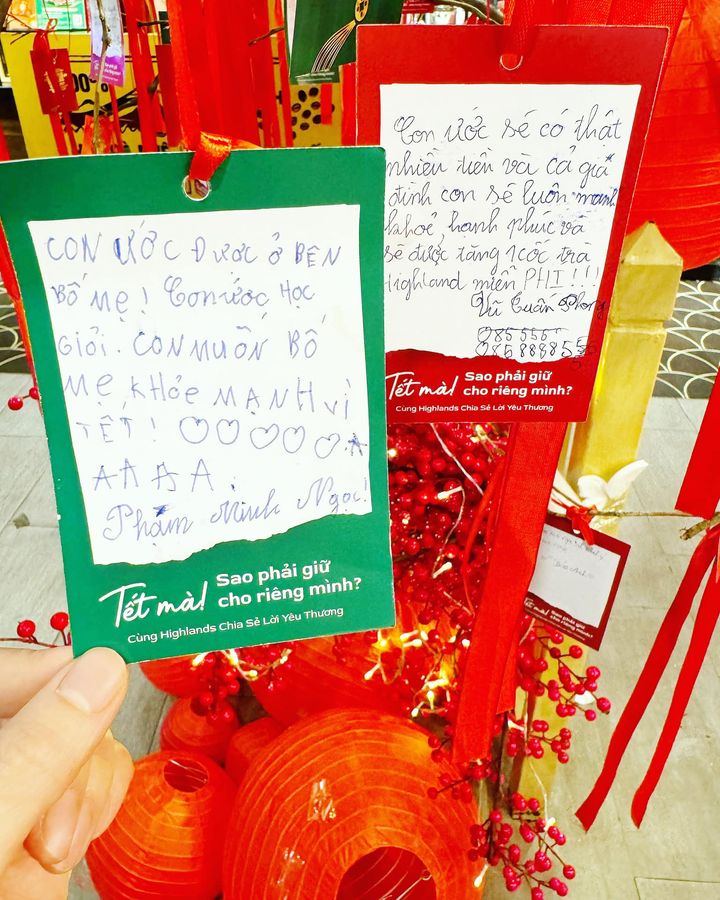 CON ƯỚC ĐƯỢC Ở BÊN
BỐ MẸ! Con ước HỌC
GIỎI. CON MUỐN BỐ
MẸ KHỎE MẠNH VÌ
TẾT! ♡♡♡♡♡.A
AAAA.
Phạm Minh Ngọc!
Tết mà! Sao phải giữ
cho riêng mình?
Cùng Highlands Chia Sẻ Lời Yêu Thương
Con ước sẽ có thật
nhiều tiền và cả gia
đình con sẽ luôn mạnh
khoẻ, hạnh phúc và
sẽ được tặng 1 cốc trà
Highland miễn PHÍ!!!
Vũ Tuấn Phong
Tết mà! Sao phải giữ
cho riêng mình?
Cùng Highlands Chia Sẻ Lời Yêu Thương
Tết mà! Sao phải giữ
cho riêng mình?